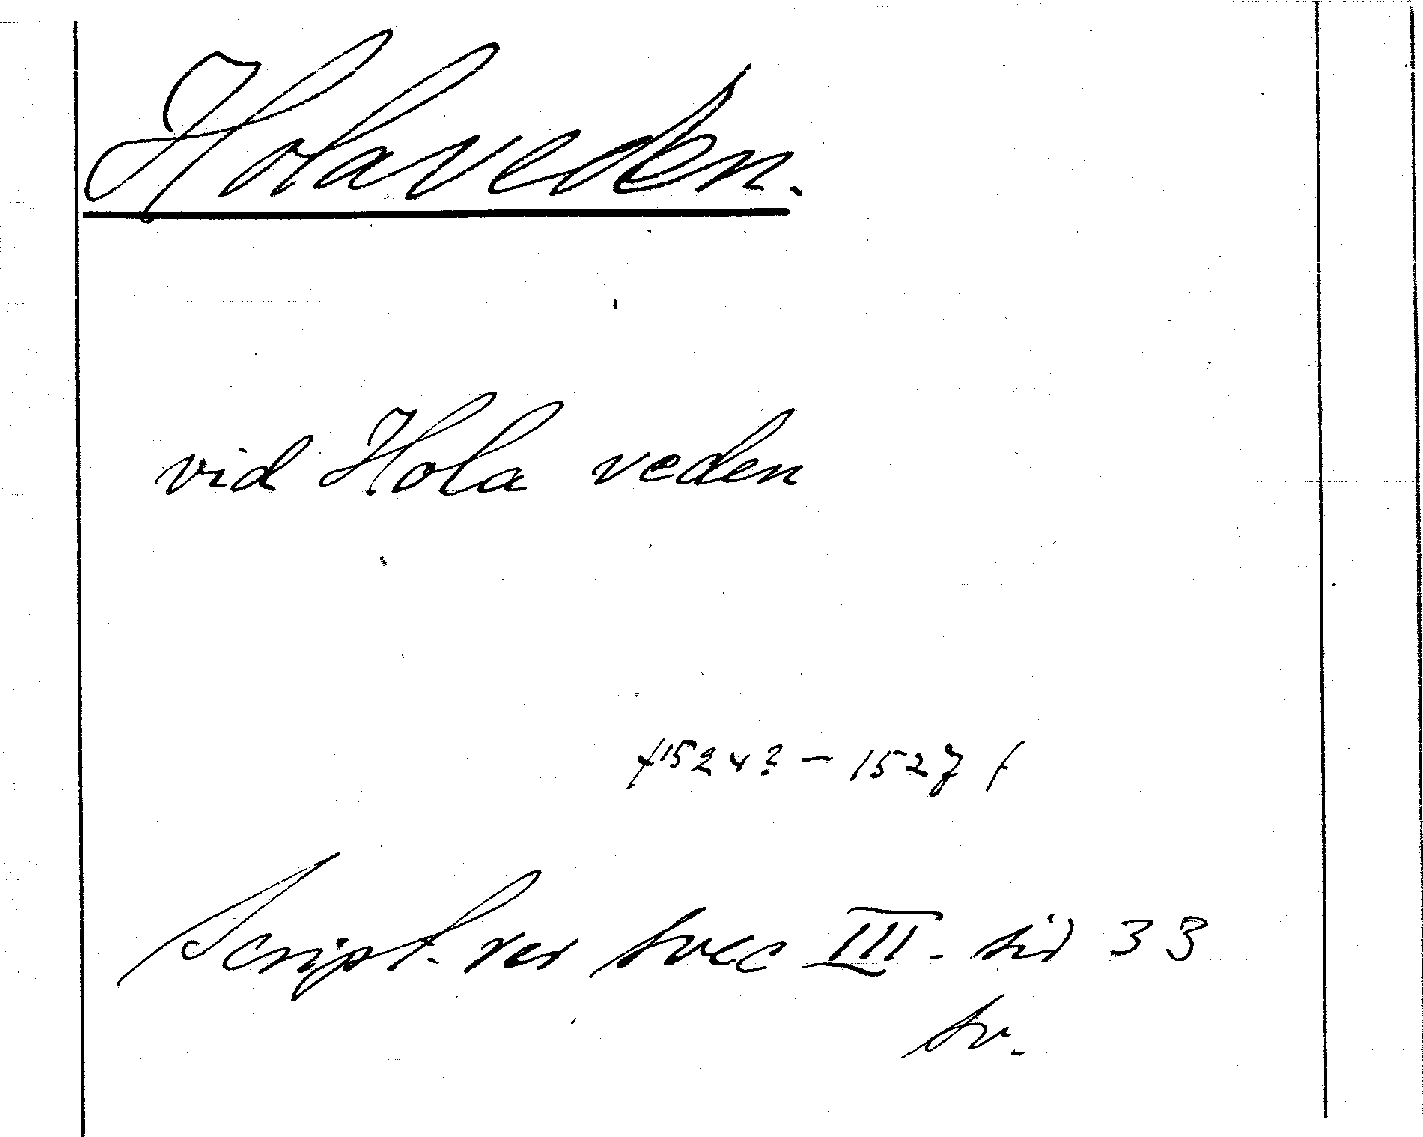 Holaveden.
vid Hola veden
(1524? - 1527)
Script. rer svec III. sid 33
sv.